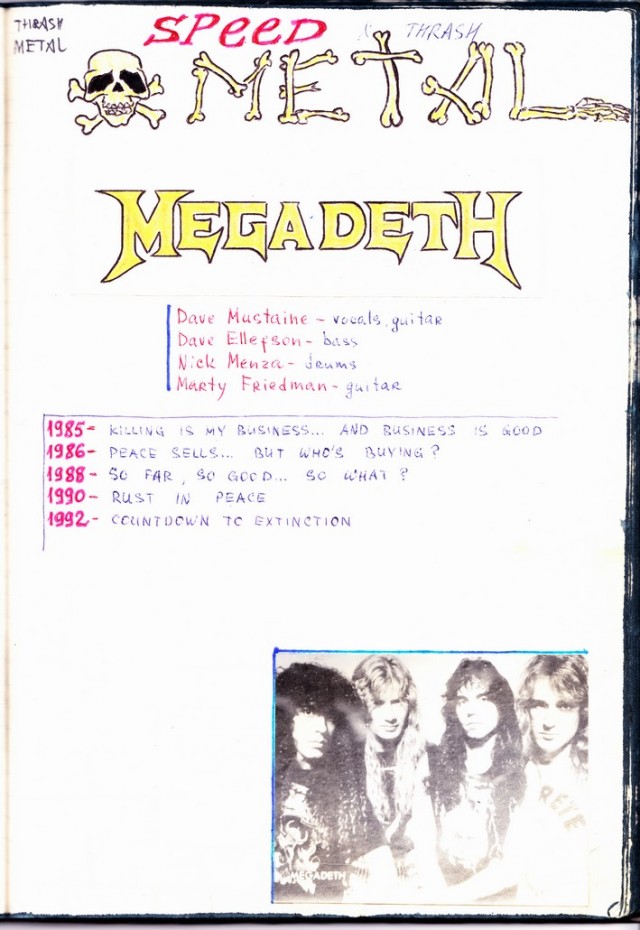 THRASH
METAL
SPEED & THRASH
METAL
MEGADETH
Dave Mustaine - vocals, guitar
Dave Ellefson - bass
Nick Menza - drums
Marty Friedman - guitar
1985- KILLING IS MY BUSINESS... AND BUSINESS IS GOOD
1986- PEACE SELLS... BUT WHO'S BUYING?
1988- SO FAR, SO GOOD... SO WHAT?
1990- RUST IN PEACE
1992- COUNTDOWN TO EXTINCTION
MEGADETH